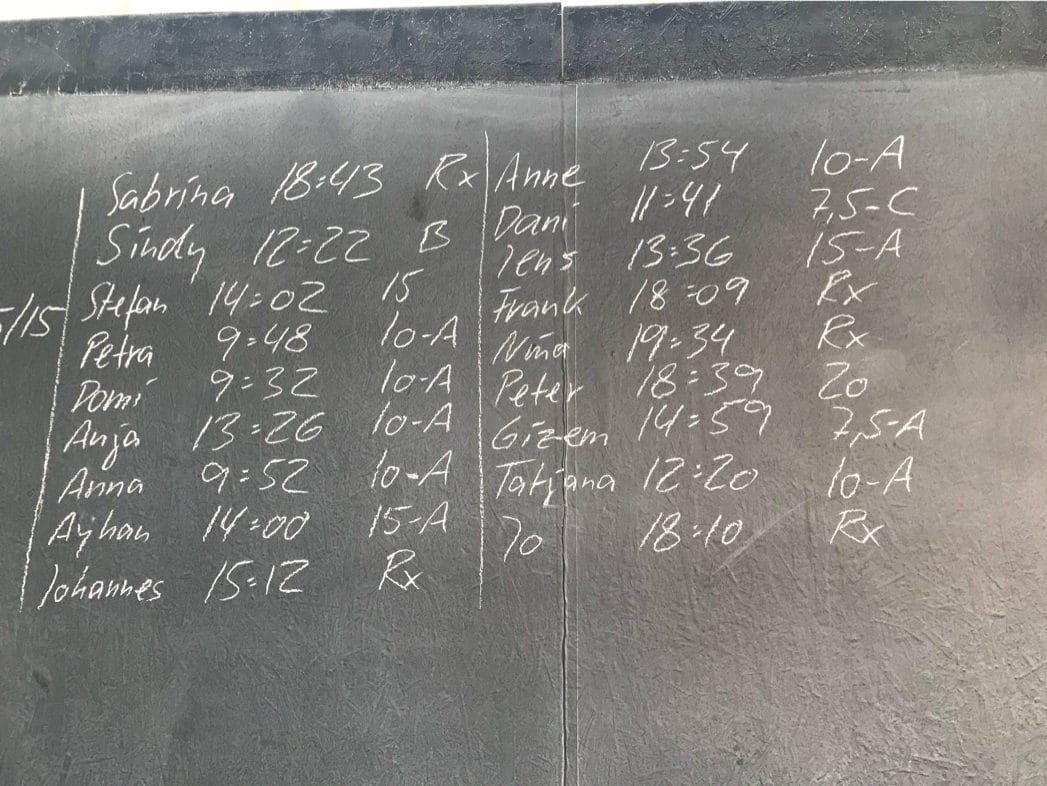 Sabrina 18:43 Rx
Sindy 12:22 B
Stefan 14:02 15
/15
Petra 9:48 10-A
Domi 9:32 10-A
Anja 13:26 10-A
Anna 9:52 10-A
Ayhan 14:00 15-A
Johannes 15:12 Rx
Anne 13:54 10-A
Dani 11:41 7,5-C
Jens 13:36 15-A
Frank 18:09 Rx
Nina 19:34 Rx
Peter 18:39 20
Gizem 14:59 7,5-A
Tatjana 12:20 10-A
Jo 18:10 Rx